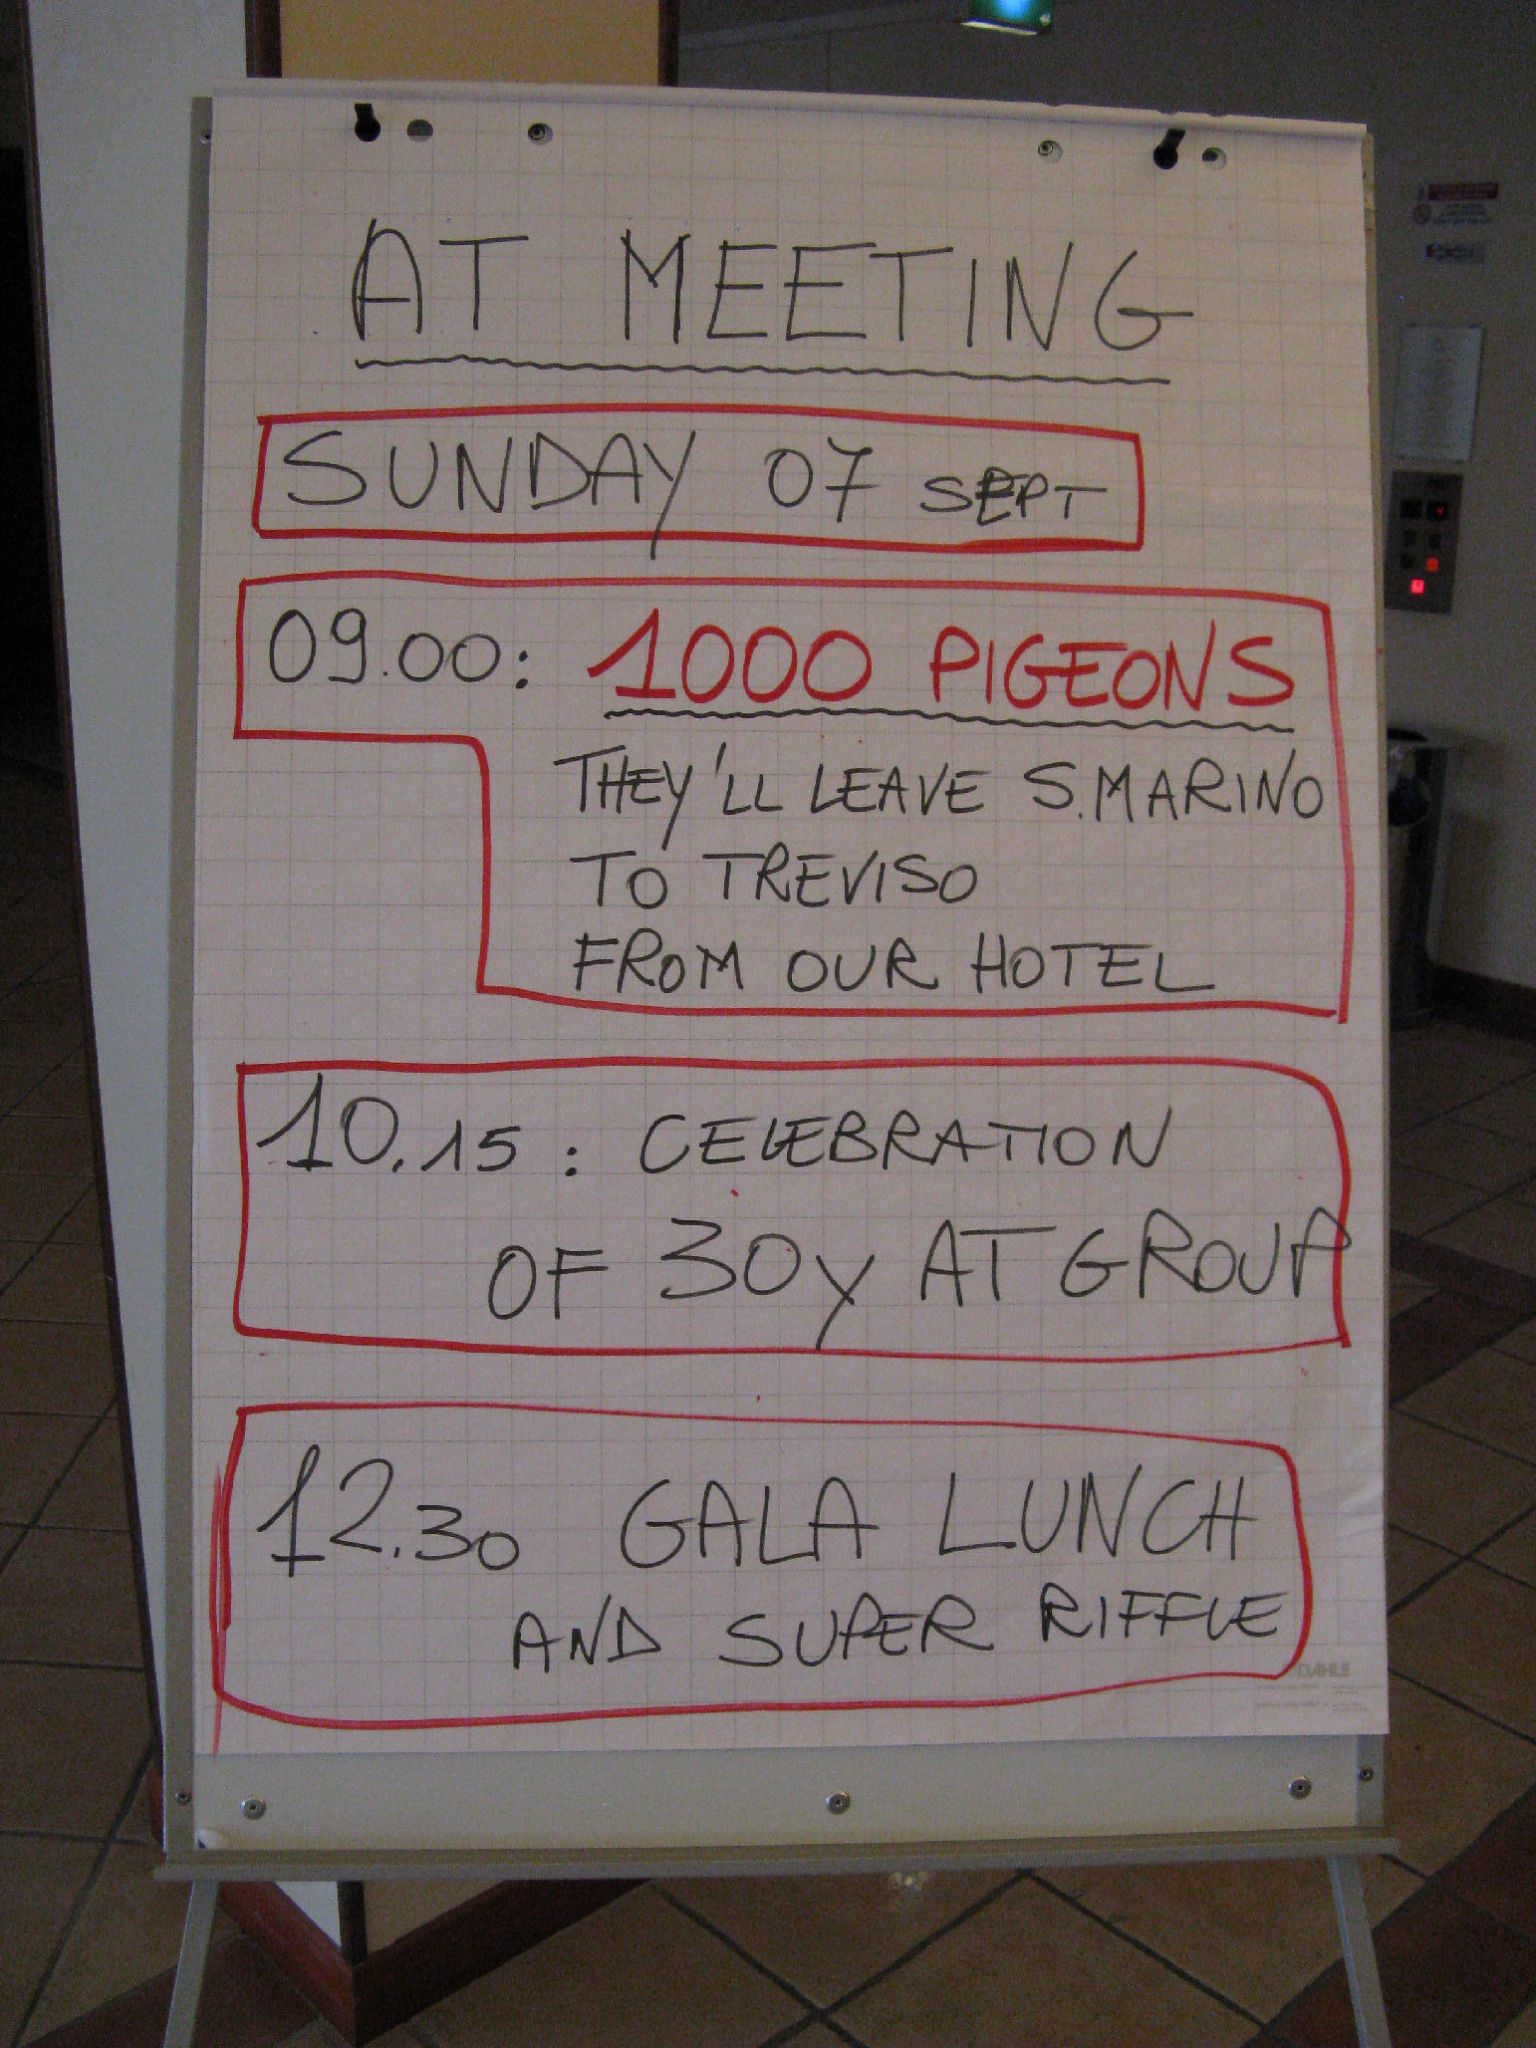 AT MEETING
SUNDAY 07 SEPT
09.00: 1000 PIGEONS
THEY'LL LEAVE S.MARINO
TO TREVISO
FROM OUR HOTEL
10.15 : CELEBRATION
OF 30y AT GROUP
12.30 GALA LUNCH
AND SUPER RIFFLE
DAHLE